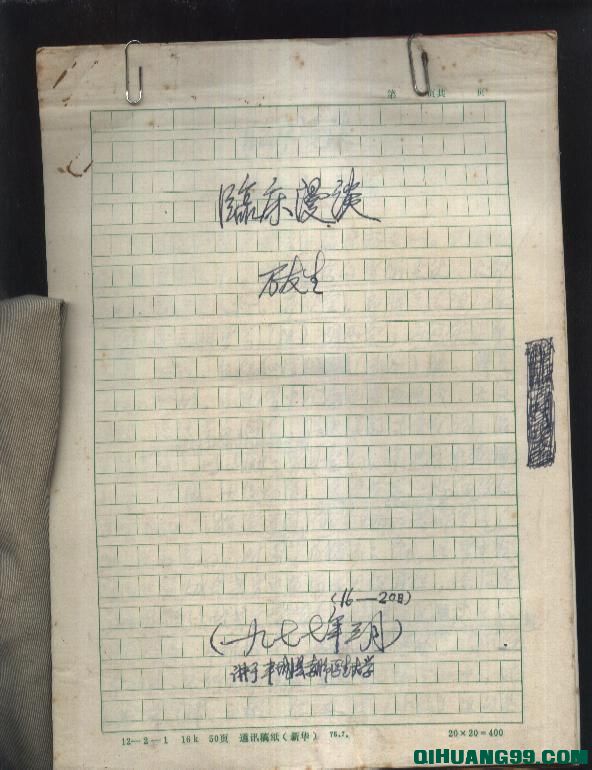 第 页共 页
临床漫谈
万友生
(16—20日)
(一九七七年三月)
讲于丰城县赤脚医生大学
12—2—1 16k 50页 通讯稿纸(新华) 76.7.
20×20=400
QIHUANG99.COM